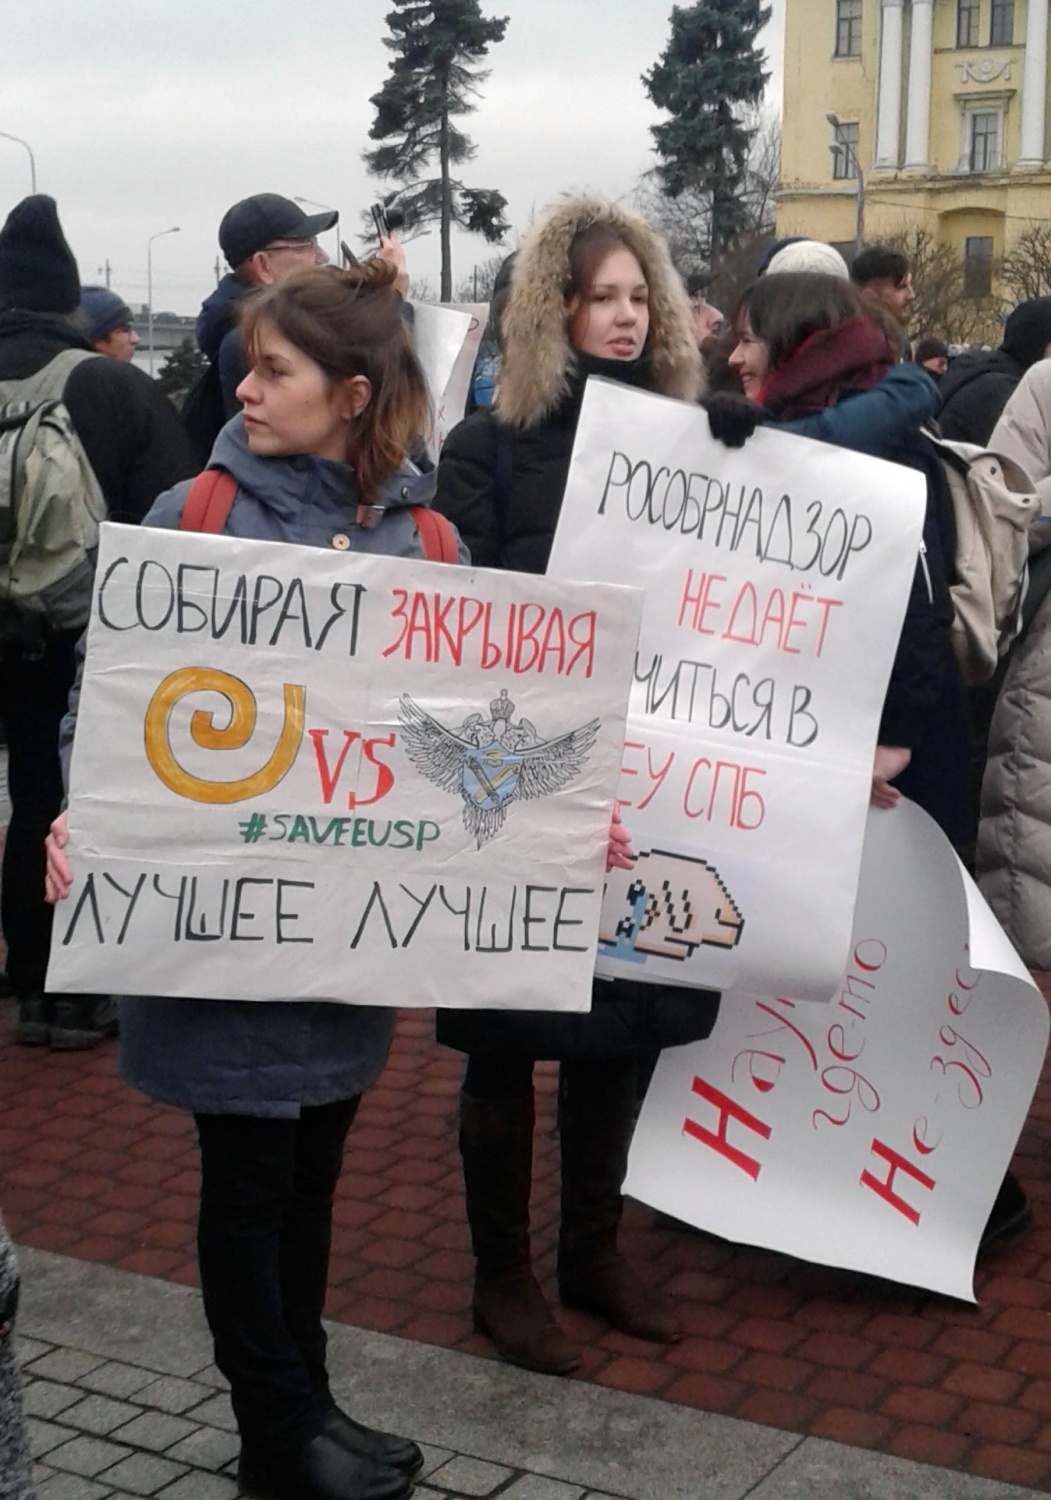 СОБИРАЯ ЗАКРЫВАЯ
VS
#SAVEEUSP
ЛУЧШЕЕ ЛУЧШЕЕ
РОСОБРНАДЗОР
НЕ ДАЁТ
ЧИТЬСЯ В
ЕУ СПБ
Нау
где-то
Не-здес